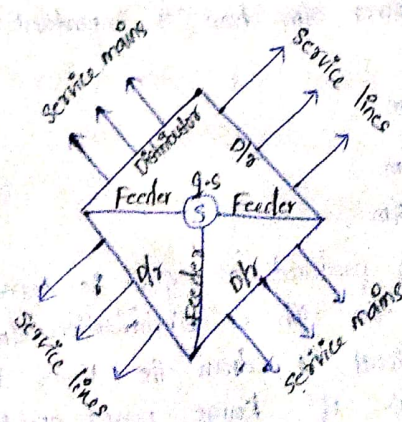 Service mains
Service lines
Distributor
D/r
g.s
Feeder
S
Feeder
Feeder
D/r
D/r
Service lines
Service mains